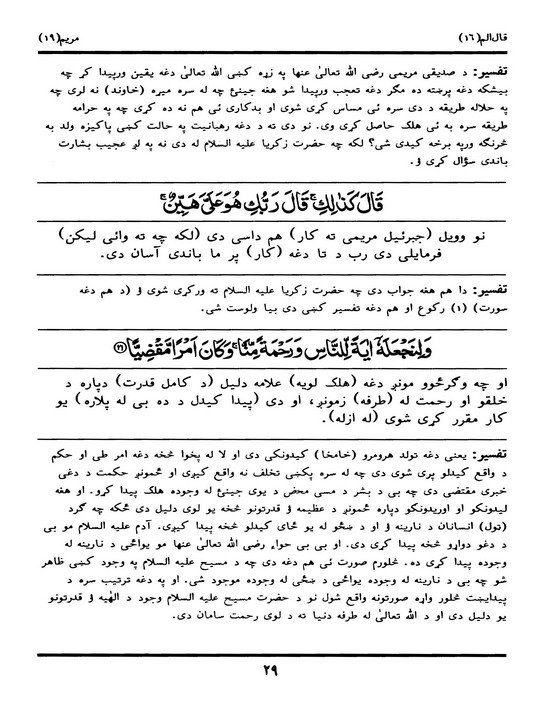 قال‌الم(١٦)
مریم(١٩)
تفسیر: د صدیقې مریمې رضی الله تعالیٰ عنها په زړه کښی الله تعالیٰ دغه یقین ورپیدا کړ چه
بیشکه دغه پرښته ده مگر دغه تعجب ورپیدا شو هغه جینئ چه له سره میړه (خاوند) نه لری چه
په حلاله طریقه د دې سره ئې مساس کړی شوی او بدکاری ئې هم نه ده کړی چه په حرامه
طریقه سره به ئې هلک حاصل کړی وی. نو دې ته د دغه رهبانیت په حالت کښی پاکیزه ولد به
څرنگه ورپه برخه کیدی شی؟ لکه چه حضرت زکریا علیه السلام له دې نه په لږ عجیب بشارت
باندې سؤال کړی ؤ.
قَالَ كَذٰلِكِ ۚ قَالَ رَبُّكِ هُوَ عَلَيَّ هَيِّنٌ ۚ
نو وویل (جبرئیل مریمې ته کار) هم داسې دی (لکه چه ته وائې لیکن)
فرمایلی دی رب د تا دغه (کار) پر ما باندې آسان دی.
تفسیر: دا هم هغه جواب دی چه حضرت زکریا علیه السلام ته ورکړی شوی ؤ (د هم دغه
سورت) (١) رکوع او هم دغه تفسیر کښی دې بیا ولوست شی.
وَلِنَجْعَلَهٗٓ اٰيَةً لِّلنَّاسِ وَرَحْمَةً مِّنَّا ۚ وَكَانَ اَمْرًا مَّقْضِيًّا ﴿٢١﴾
او چه وگرځوو مونږ دغه (هلک لویه) علامه دلیل (د کامل قدرت) دپاره د
خلقو او رحمت له (طرفه) زمونږ، او دی (پیدا کیدل د ده بې له پلاره) یو
کار مقرر کړی شوی (له ازله).
تفسیر: یعنی دغه تولد هرومرو (خامخا) کیدونکی دی او لا له پخوا څخه دغه امر طی او حکم
د واقع کیدلو پرې شوی دی چه له سره پکښی تخلف نه واقع کیږی او ځمونږ حکمت د دغې
خبرې مقتضی دی چه بې د بشر د مسې محض د یوې جینئ له وجوده هلک پیدا کړو. او هغه
لیدونکو او اوریدونکو دپاره ځمونږ د عظیمه ؤ قدرتونو څخه یو لوی دلیل دی ځکه چه گرد
(تول) انسانان د نارینه ؤ او د ښځو له یو ځای کیدلو څخه پیدا کیږی. آدم علیه السلام مو بې
د دغو دواړو څخه پیدا کړی دی. او بی بی حواء رضی الله تعالیٰ عنها مو یواځی د نارینه له
وجوده پیدا کړې ده. څلورم صورت ئې هم دغه دی چه د مسیح علیه السلام په وجود کښی ظاهر
شو چه بې د نارینه له وجوده یواځی د ښځی له وجوده موجود شی. او په دغه ترتیب سره د
پیدایښت څلور واړه صورتونه واقع شول نو د حضرت مسیح علیه السلام وجود د الٰهیه ؤ قدرتونو
یو دلیل دی او د الله تعالیٰ له طرفه دنیا ته د لوی رحمت سامان دی.
٢٩